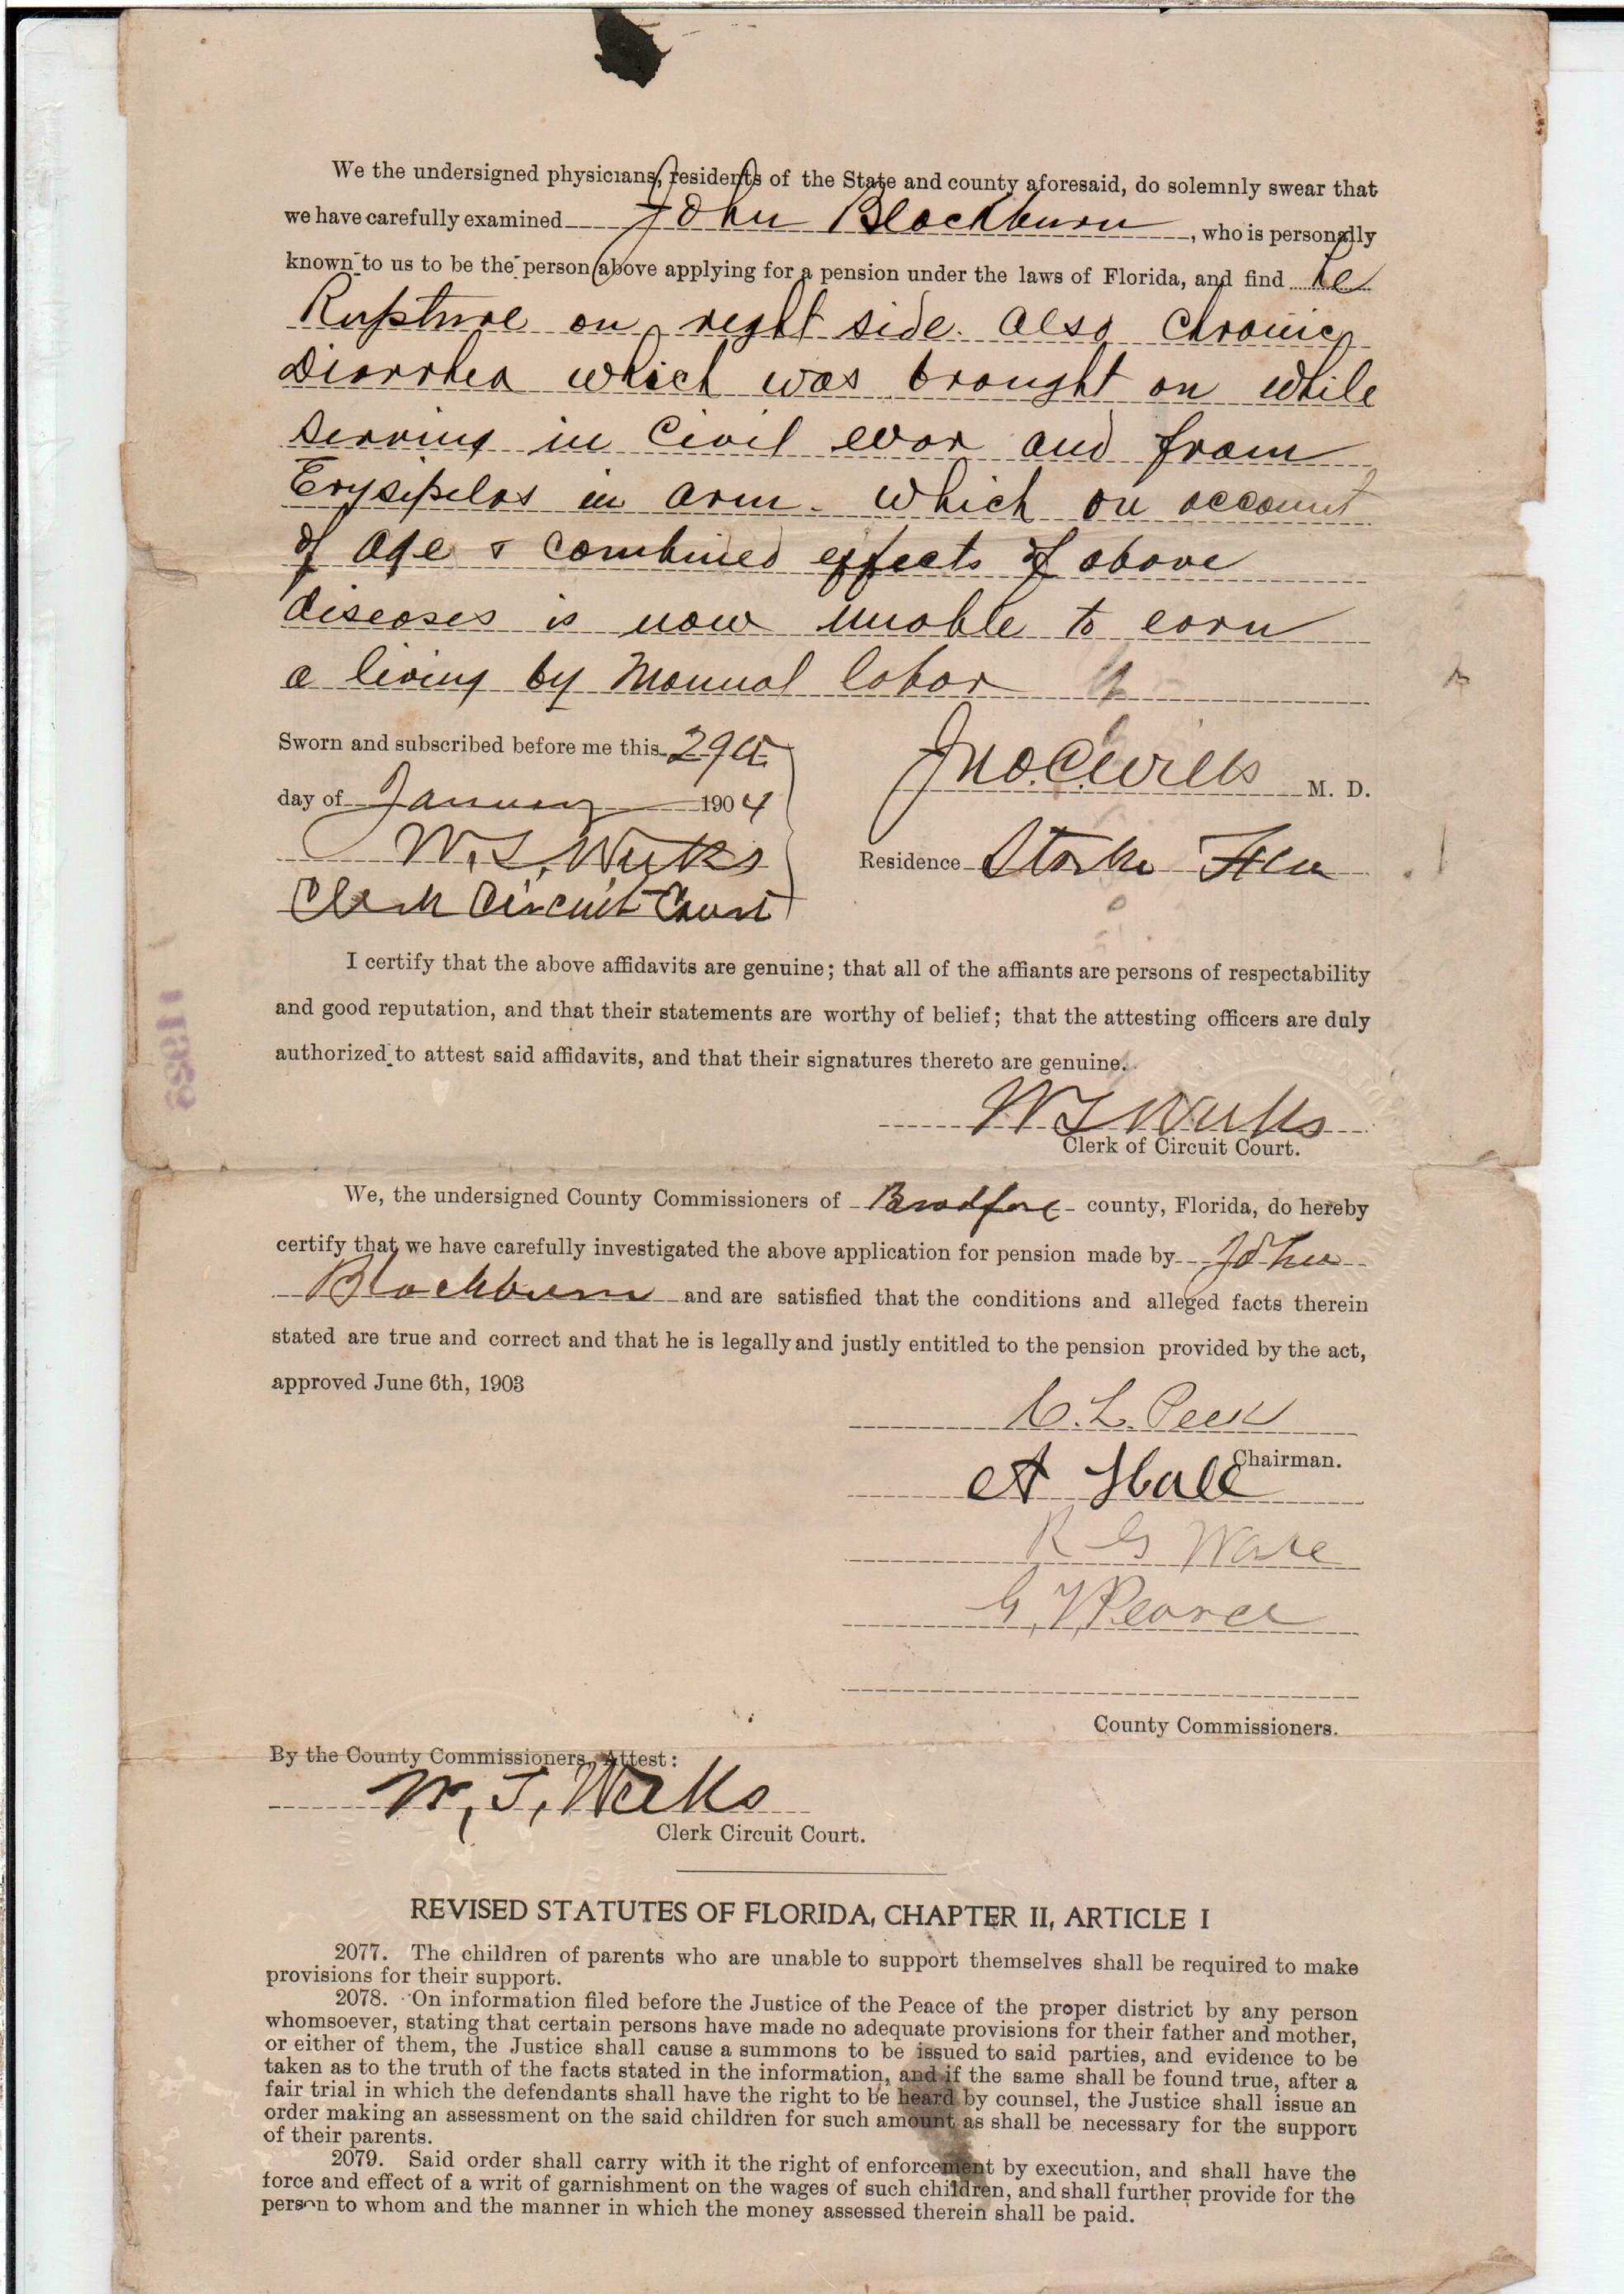 We the undersigned physicians, residents of the State and county aforesaid, do solemnly swear that
we have carefully examined John Blackburn, who is personally
known to us to be the person above applying for a pension under the laws of Florida, and find he
Rupture on right side. also Chronic
Diarrhea which was brought on while
serving in Civil war and from
Erysipelas in arm. which on account
of age & combined effects of above
diseases is now unable to earn
a living by Manual labor
Sworn and subscribed before me this 29th
day of January 1904
Jno. C. Wills M. D.
W. T. Weeks
Residence Starke Fla
Clerk Circuit Court
I certify that the above affidavits are genuine; that all of the affiants are persons of respectability
and good reputation, and that their statements are worthy of belief; that the attesting officers are duly
authorized to attest said affidavits, and that their signatures thereto are genuine.
W T Weeks
Clerk of Circuit Court.
We, the undersigned County Commissioners of Bradford county, Florida, do hereby
certify that we have carefully investigated the above application for pension made by John
Blackburn and are satisfied that the conditions and alleged facts therein
stated are true and correct and that he is legally and justly entitled to the pension provided by the act,
approved June 6th, 1903
C. L. Peek
Chairman.
A Hall
R G Ware
G. V. Pearce
County Commissioners.
By the County Commissioners, Attest:
W. T. Weeks
Clerk Circuit Court.
REVISED STATUTES OF FLORIDA, CHAPTER II, ARTICLE I
2077. The children of parents who are unable to support themselves shall be required to make
provisions for their support.
2078. On information filed before the Justice of the Peace of the proper district by any person
whomsoever, stating that certain persons have made no adequate provisions for their father and mother,
or either of them, the Justice shall cause a summons to be issued to said parties, and evidence to be
taken as to the truth of the facts stated in the information, and if the same shall be found true, after a
fair trial in which the defendants shall have the right to be heard by counsel, the Justice shall issue an
order making an assessment on the said children for such amount as shall be necessary for the support
of their parents.
2079. Said order shall carry with it the right of enforcement by execution, and shall have the
force and effect of a writ of garnishment on the wages of such children, and shall further provide for the
person to whom and the manner in which the money assessed therein shall be paid.